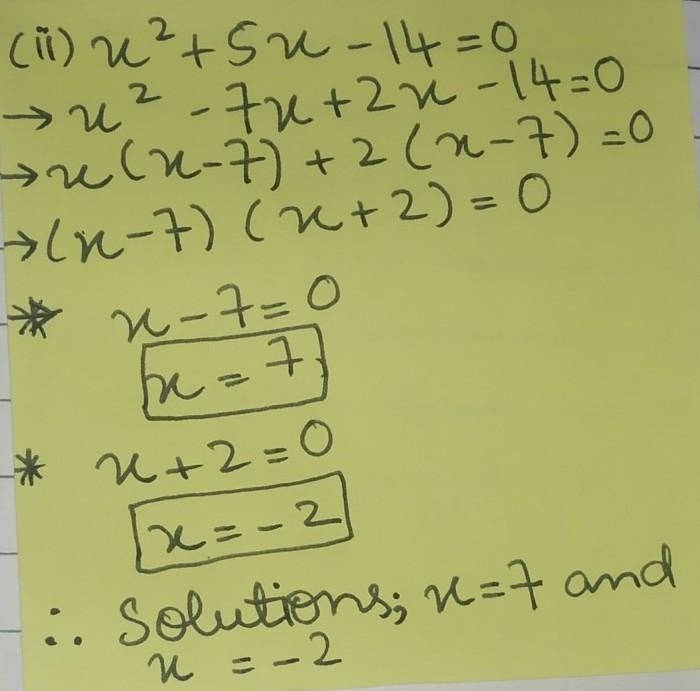 (ii) x² + 5x - 14 = 0
→ x² - 7x + 2x - 14 = 0
→ x (x - 7) + 2 (x - 7) = 0
→ (x - 7) (x + 2) = 0
* x - 7 = 0
x = 7
* x + 2 = 0
x = - 2
∴ Solutions; x = 7 and
x = - 2